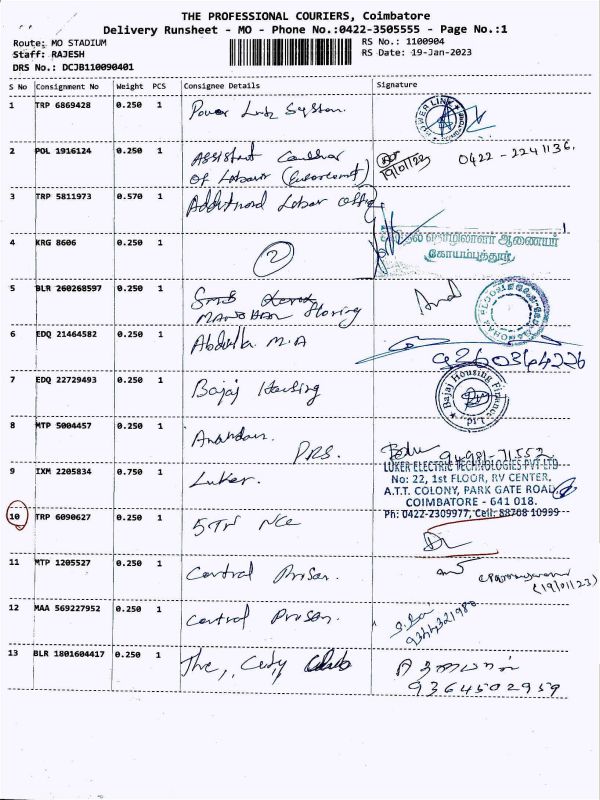 THE PROFESSIONAL COURIERS, Coimbatore
Delivery Runsheet - MO - Phone No.:0422-3505555 - Page No.:1
Route: MO STADIUM
RS No.: 1100904
Staff: RAJESH
RS Date: 19-Jan-2023
DRS No.: DCJB110090401
S No Consignment No Weight PCS Consignee Details Signature
1 TRP 6869428 0.250 1 Power Link System.
POWER LINK
2 POL 1916124 0.250 1 Assistant
of Labour (Enforcement)
19/01/23
0422 - 2241136.
3 TRP 5811973 0.570 1 Additional Labor office
தொழிலாளர் ஆணையர்
கோயம்புத்தூர்
4 KRG 8606 0.250 1 2
5 BLR 260268597 0.250 1
MANOHAR
6 EDQ 21464582 0.250 1 Abdulla M.A
9260364226
7 EDQ 22729493 0.250 1 Bajaj Housing
Bajaj Housing Finance Ltd.
8 MTP 5004457 0.250 1 Anandan. PRS.
94981-71552
9 IXM 2205834 0.750 1 Luker.
LUKER ELECTRIC TECHNOLOGIES PVT LTD
No: 22, 1st FLOOR, RV CENTER,
A.T.T. COLONY, PARK GATE ROAD
COIMBATORE - 641 018.
Ph: 0422-2309977, Cell: 88708 10999
10 TRP 6090627 0.250 1 5 TN NCC
11 MTP 1205527 0.250 1 Central Prison.
(19/01/23)
12 MAA 569227952 0.250 1 Central Prison.
9344321980
13 BLR 1801604417 0.250 1 The, City Club
9364502959